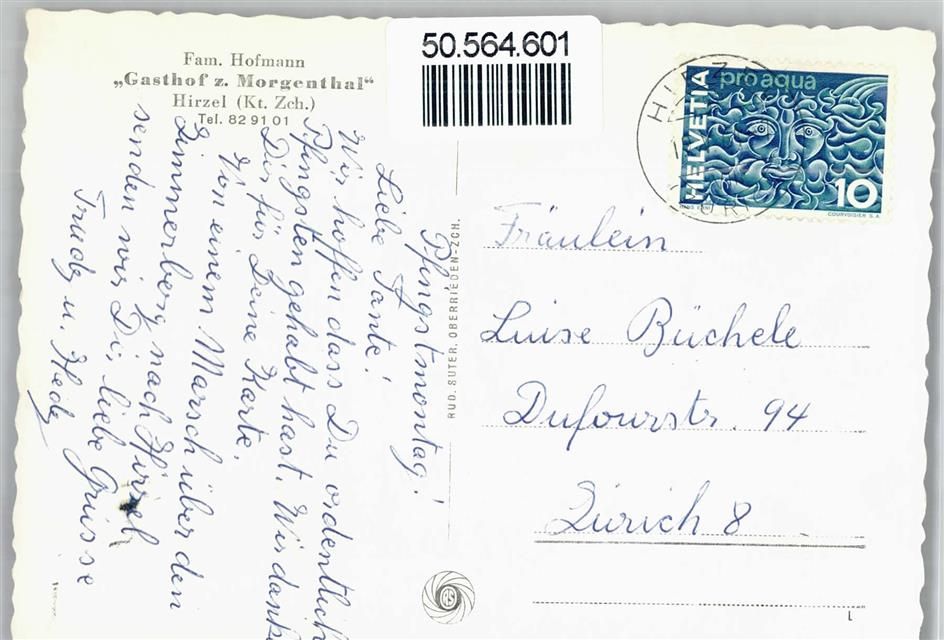 Fam. Hofmann
„Gasthof z. Morgenthal“
Hirzel (Kt. Zch.)
Tel. 82 91 01
50.564.601
HELVETIA
pro aqua
10
HANS ERNI
COURVOISIER S.A.
Pfingstmontag!
Liebe Tante!
Wir hoffen dass Du ordentlich
Pfingsten gehabt hast. Wir danke
Dir für Deine Karte.
Von einem Marsch über den
Zimmerberg nach Hirzel
senden wir Dir liebe Grüsse
Trudy u. Hedy
RUD. SUTER, OBERRIEDEN-ZCH.
Fräulein
Luise Büchele
Dufourstr. 94
Zürich 8